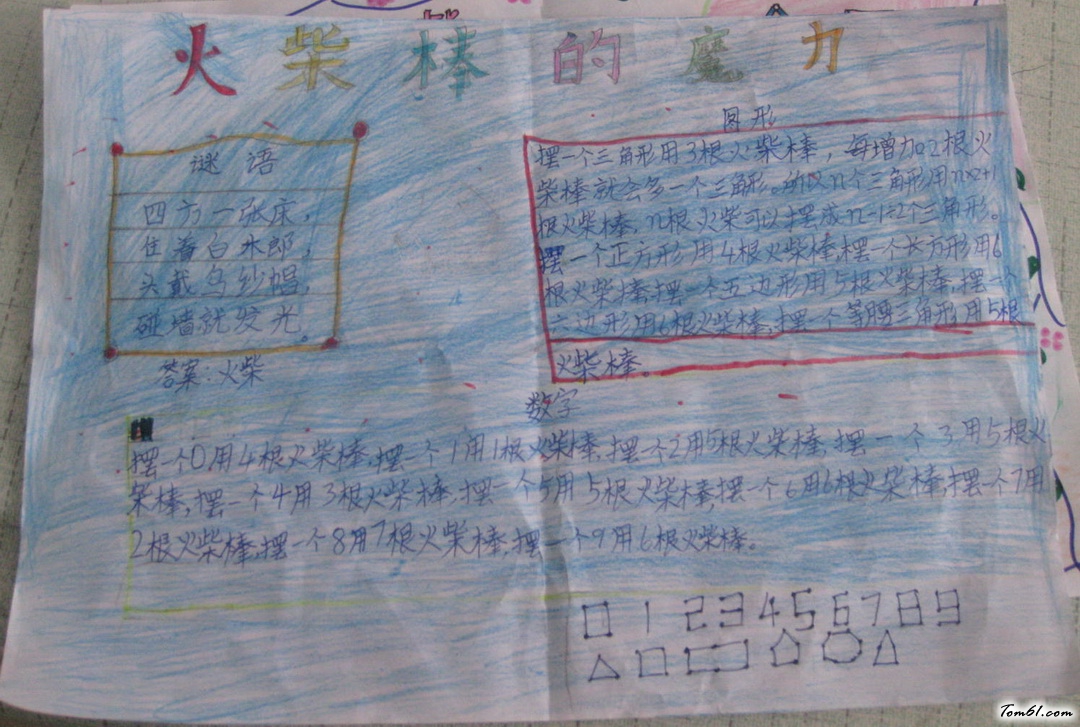 火柴棒的魔力
谜语
四方一张床，
住着白水郎，
头戴乌纱帽，
碰墙就发光。
答案：火柴
图形
摆一个三角形用3根火柴棒，每增加2根火
柴棒就会多一个三角形。所以n个三角形用n×2+1
根火柴棒，n根火柴可以摆成n-1÷2个三角形。
摆一个正方形用4根火柴棒，摆一个长方形用6
根火柴棒，摆一个五边形用5根火柴棒，摆一个
六边形用6根火柴棒，摆一个等腰三角形用5根
火柴棒。
数字
摆一个0用4根火柴棒，摆一个1用1根火柴棒，摆一个2用5根火柴棒，摆一个3用5根火
柴棒，摆一个4用3根火柴棒，摆一个5用5根火柴棒，摆一个6用6根火柴棒，摆个7用
2根火柴棒，摆一个8用7根火柴棒，摆一个9用6根火柴棒。
0 1 2 3 4 5 6 7 8 9
Tom61.com